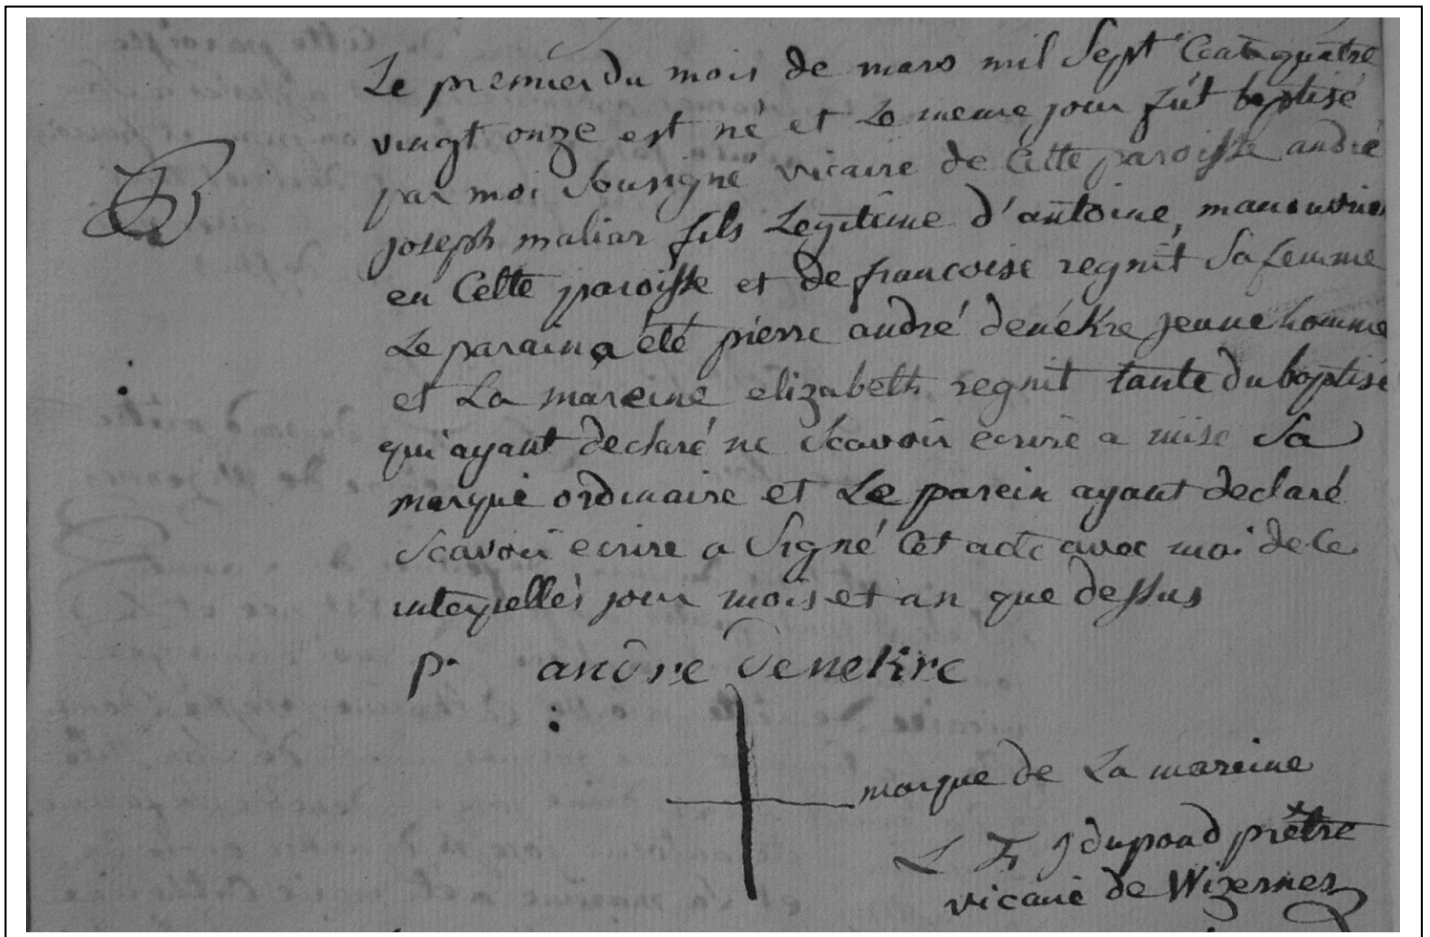 Le premier du mois de mars mil Sept Cent quatre
vingt onze est né et Le meme jour fût baptisé
B
par moi Sousigné vicaire de Cette paroisse andré
joseph maliar fils Legitime d'antoine, manouvrier
en Cette paroisse et de francoise regnit Sa femme
Le parain a été pierre andré denékre jeune homme
et La mareine elizabeth regnit tante du baptisé
qui ayant declaré ne Scavoir ecrire a mise Sa
marque ordinaire et Le parein ayant declaré
Scavoir ecrire a Signé Cet acte avec moi de ce
interpellés jour mois et an que dessus
p. andre denekre
marque de La mareine
L F J dupond prêtre
vicaire de Wizernes